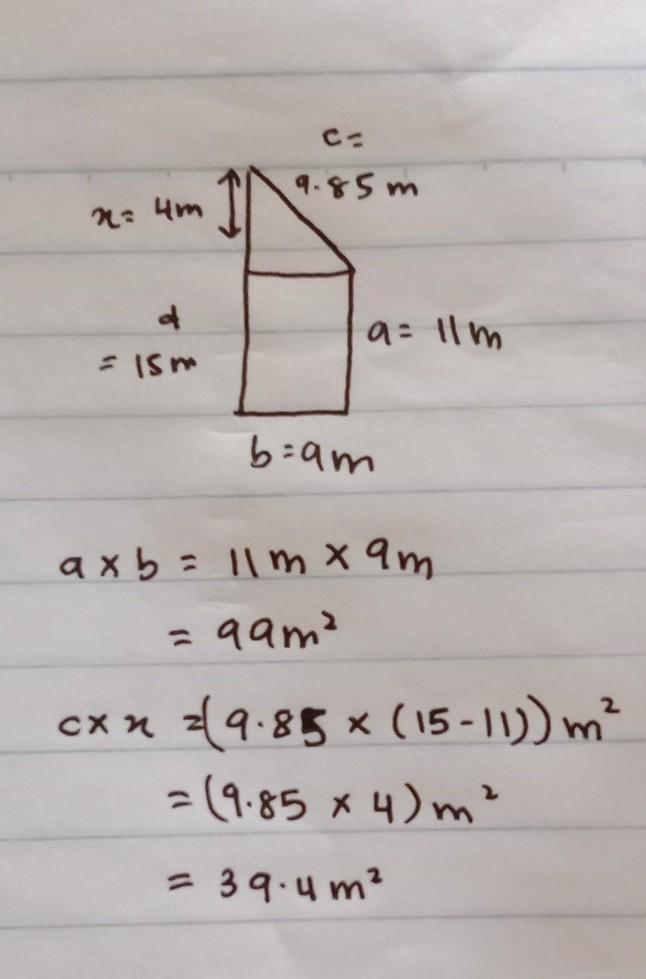 c=
9.85 m
x = 4m
d
= 15m
a = 11m
b = 9m
a x b = 11m x 9m
= 99m²
c x x = (9.85 x (15-11)) m²
= (9.85 x 4) m²
= 39.4 m²